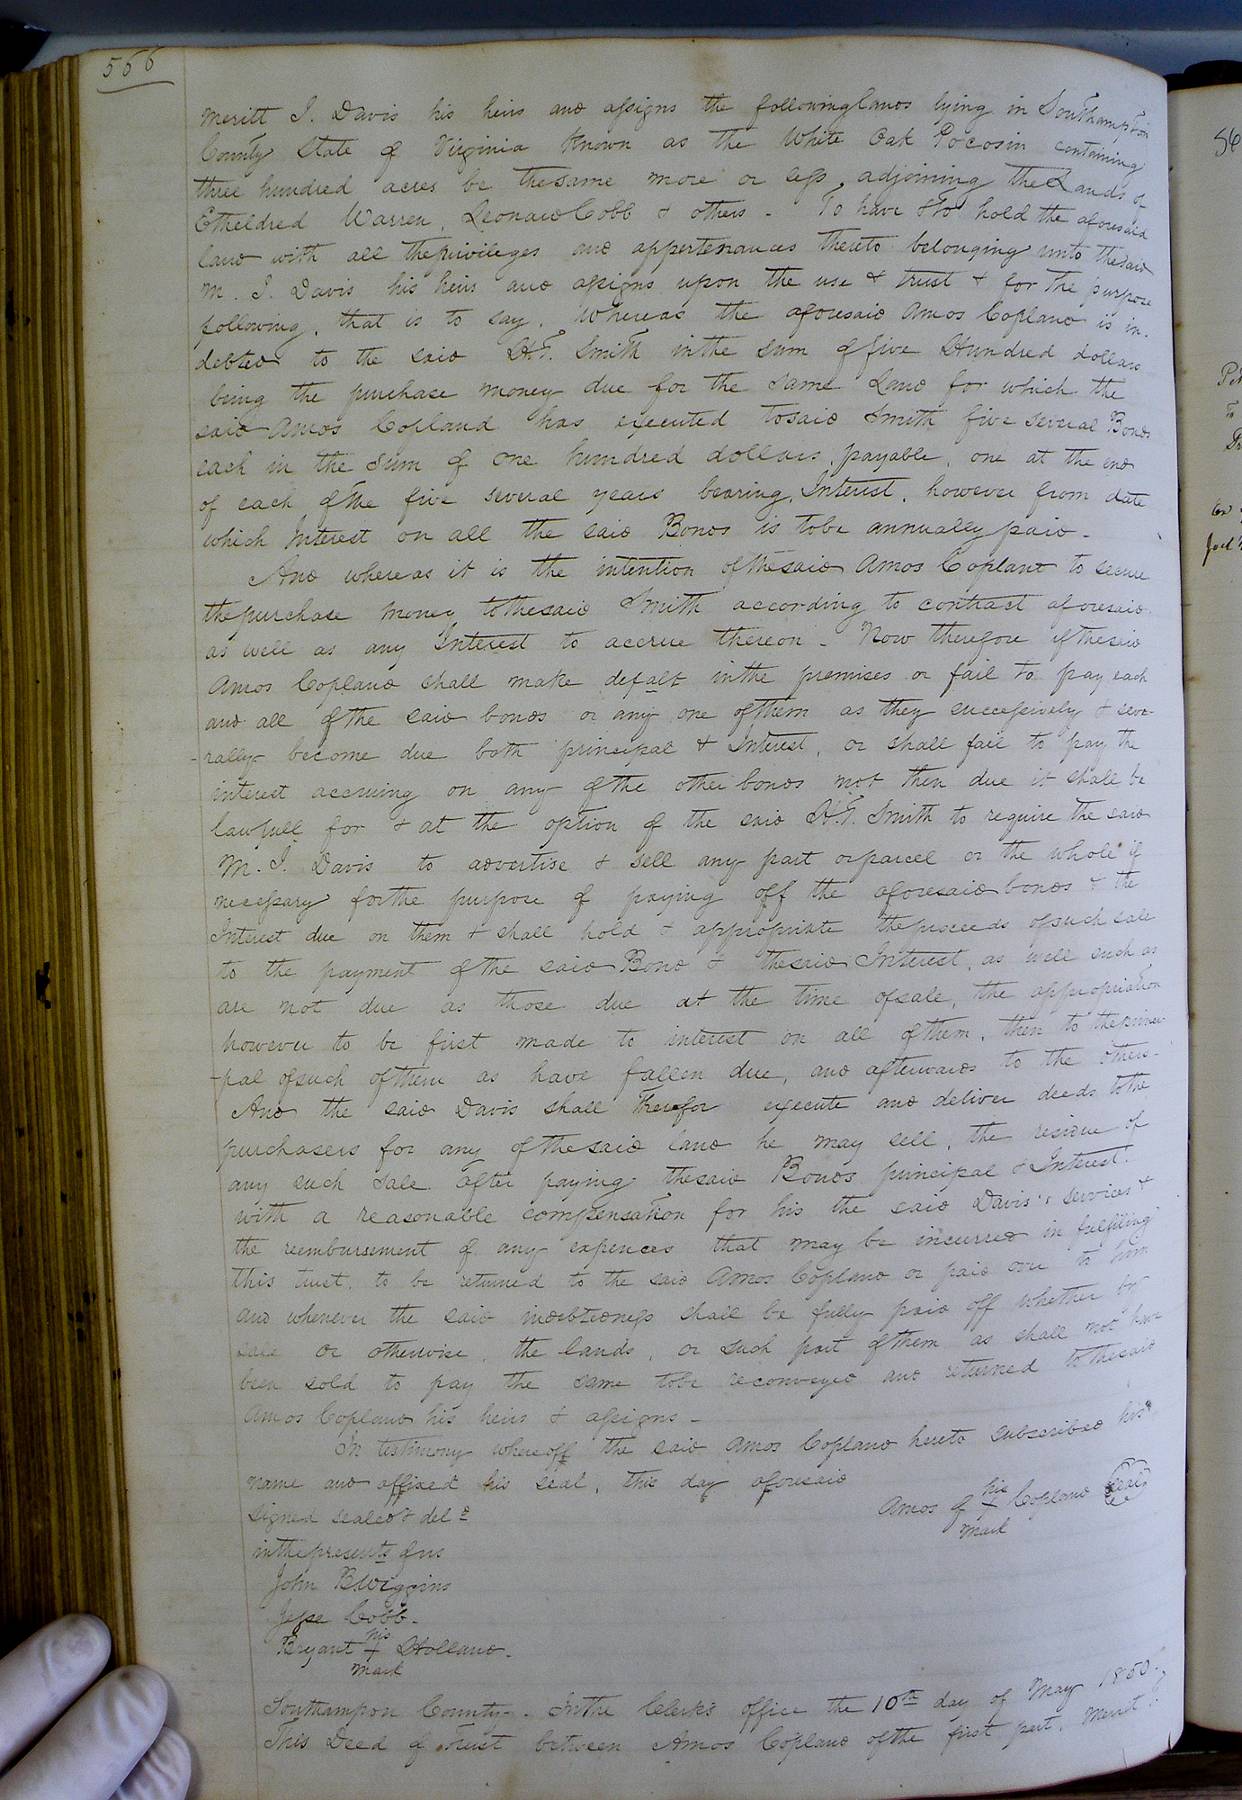 566
Meritt I. Davis his heirs and assigns the following lands lying in Southampton
County State of Virginia known as the White Oak Pocosin containing
three hundred acres be the same more or less, adjoining the Lands of
Etheldred Warren, Leonard Cobb & others - To have & to hold the aforesaid
land with all the privileges and appertenances thereto belonging unto the said
M. I. Davis his heirs and assigns upon the use & trust & for the purpose
following, that is to say. Whereas the aforesaid Amos Copland is in-
debted to the said H.T. Smith in the sum of five Hundred dollars
being the purchase money due for the same Land for which the
said Amos Copland has executed to said Smith five several Bonds
each in the sum of one hundred dollars, payable, one at the end
of each of the five several years bearing Interest, however from date
which Interest on all the said Bonds is to be annually paid -
And whereas it is the intention of the said Amos Copland to secure
the purchase money to the said Smith according to contract aforesaid
as well as any Interest to accrue thereon - Now therefore if the said
Amos Copland shall make defalt in the premises or fail to pay each
and all of the said bonds or any one of them as they successively & seve-
-rally become due both principal & Interest, or shall fail to pay the
interest accruing on any of the other bonds not then due it shall be
lawfull for & at the option of the said H.T. Smith to require the said
M. I. Davis to advertise & sell any part or parcel or the whole if
necessary for the purpose of paying off the aforesaid bonds & the
Interest due on them & shall hold & appropriate the proceeds of such sale
to the payment of the said Bond & the said Interest, as well such as
are not due as those due at the time of sale, the appropriation
however to be first made to interest on all of them, then to the princi-
-pal of such of them as have fallen due, and afterwards to the others -
And the said Davis shall therefor execute and deliver deeds to the
purchasers for any of the said land he may sell, the residue of
any such sale after paying the said Bonds principal & Interest.
with a reasonable compensation for his the said Davis's services &
the reembursement of any expences that may be incurred in fulfiling
this trust, to be returned to the said Amos Copland or paid over to him
and whenever the said indebtedness shall be fully paid off whether by
sale or otherwise, the lands, or such part of them as shall not have
been sold to pay the same to be reconveyed and returned to the said
Amos Copland his heirs & assigns -
In testimony whereoff the said Amos Copland hereto subscribed his
name and affixed his seal, this day aforesaid
Signed sealed & deld
Amos his + mark Copland Seal
in the presents of us
John B Wiggins
Jesse Cobb -
Bryant his + mark Holland -
Southampon County - In the Clerks office the 10th day of May 1850 -
This Deed of Trust between Amos Copland of the first part, Merrit I.